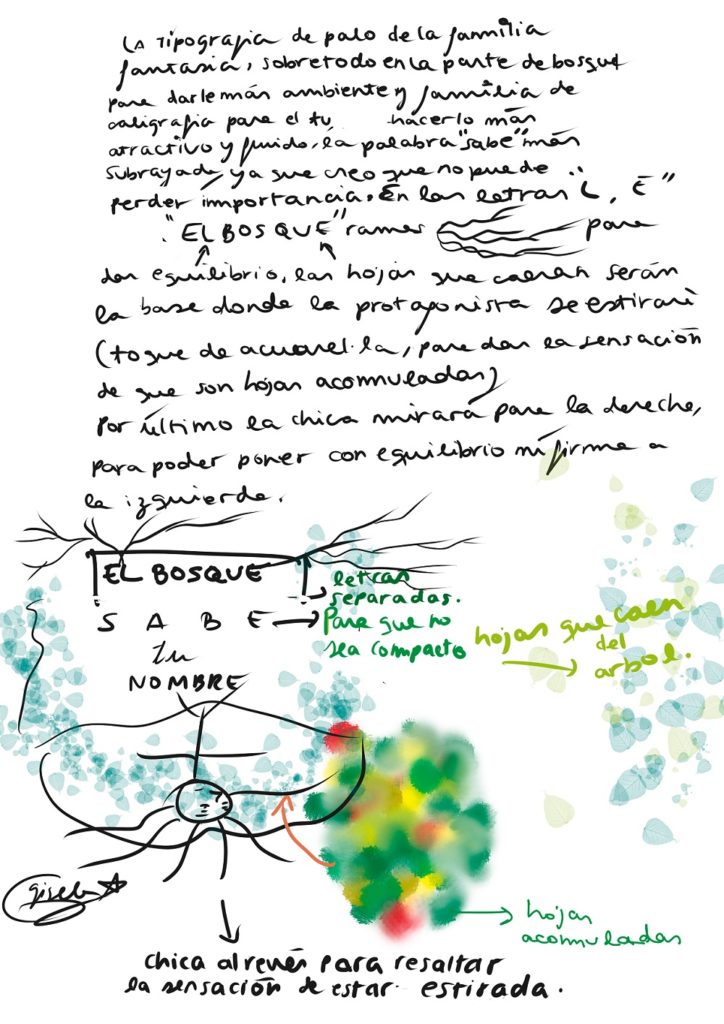 La tipografia de palo de la familia
fantasia, sobretodo en la parte de bosque
para darle más ambiente y familia de
caligrafia para el tu hacerlo más
atractivo y fluido, la palabra "sabe" más
subrayada, ya que creo que no puede
perder importancia. En las letras "L, E"
"EL BOSQUE" ramas para
dar equilibrio, las hojas que caeran serán
la base donde la protagonista se estirará
(toque de acuarel·la, para dar la sensación
de que son hojas acomuladas)
Por último la chica mirará para la dereche,
para poder poner con equilibrio mi firma a
la izquierda.
EL BOSQUE
S A B E
tu
NOMBRE
letras
separadas.
Para que no
sea compacto
hojas que caen
del
arbol.
gisela
hojas
acomuladas
chica al revés para resaltar
la sensación de estar estirada.